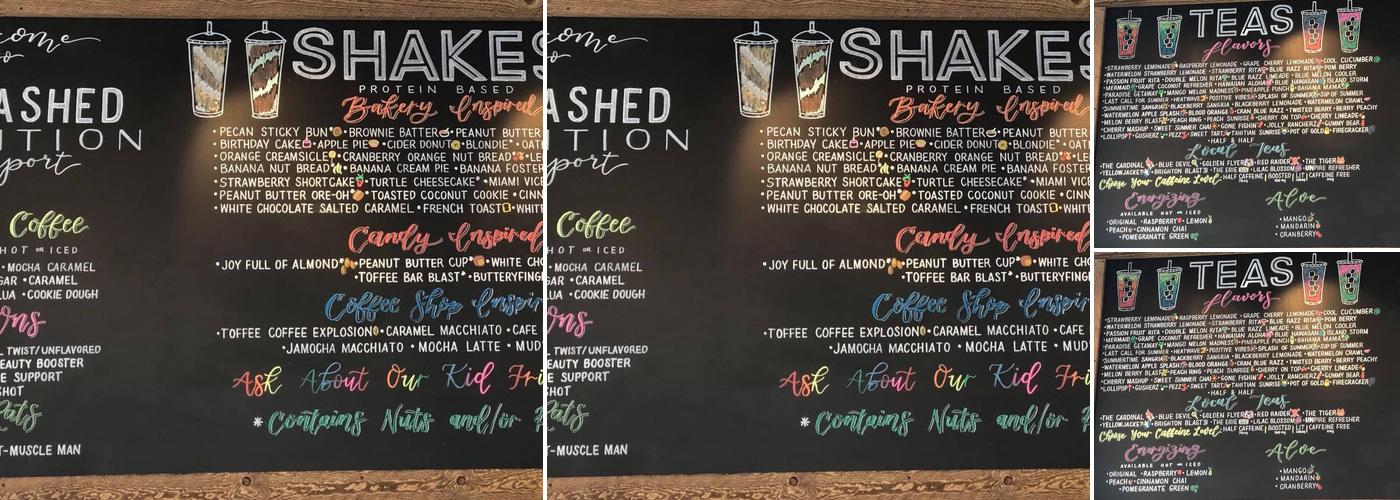 come
ASHED
ITION
port
Coffee
HOT OR ICED
• MOCHA CARAMEL
GAR • CARAMEL
LUA • COOKIE DOUGH
ons
TWIST/UNFLAVORED
EAUTY BOOSTER
E SUPPORT
SHOT
ats
T-MUSCLE MAN
SHAKES
PROTEIN BASED
Bakery Inspired
• PECAN STICKY BUN* • BROWNIE BATTER • PEANUT BUTTER
BIRTHDAY CAKE • APPLE PIE • CIDER DONUT • BLONDIE* • OAT
• ORANGE CREAMSICLE • CRANBERRY ORANGE NUT BREAD* • LE
• BANANA NUT BREAD* • BANANA CREAM PIE • BANANA FOSTER
• STRAWBERRY SHORTCAKE • TURTLE CHEESECAKE* • MIAMI VICE
• PEANUT BUTTER ORE-OH* • TOASTED COCONUT COOKIE • CINN
• WHITE CHOCOLATE SALTED CARAMEL • FRENCH TOAST • WHIT
Candy Inspired
• JOY FULL OF ALMOND* • PEANUT BUTTER CUP* • WHITE CHO
TOFFEE BAR BLAST* • BUTTERYFING
Coffee Shop Inspir
• TOFFEE COFFEE EXPLOSION • CARAMEL MACCHIATO • CAFE
• JAMOCHA MACCHIATO • MOCHA LATTE • MUD
Ask About Our Kid Fri
* Contains Nuts and/or P
come
ASHED
ITION
port
Coffee
HOT OR ICED
• MOCHA CARAMEL
GAR • CARAMEL
LUA • COOKIE DOUGH
ons
TWIST/UNFLAVORED
EAUTY BOOSTER
E SUPPORT
SHOT
ats
T-MUSCLE MAN
SHAKES
PROTEIN BASED
Bakery Inspired
• PECAN STICKY BUN* • BROWNIE BATTER • PEANUT BUTTER
BIRTHDAY CAKE • APPLE PIE • CIDER DONUT • BLONDIE* • OAT
• ORANGE CREAMSICLE • CRANBERRY ORANGE NUT BREAD* • LE
• BANANA NUT BREAD* • BANANA CREAM PIE • BANANA FOSTER
• STRAWBERRY SHORTCAKE • TURTLE CHEESECAKE* • MIAMI VICE
• PEANUT BUTTER ORE-OH* • TOASTED COCONUT COOKIE • CINN
• WHITE CHOCOLATE SALTED CARAMEL • FRENCH TOAST • WHITE
Candy Inspired
• JOY FULL OF ALMOND* • PEANUT BUTTER CUP* • WHITE CH
TOFFEE BAR BLAST* • BUTTERYFING
Coffee Shop Inspir
• TOFFEE COFFEE EXPLOSION • CARAMEL MACCHIATO • CAFE
• JAMOCHA MACCHIATO • MOCHA LATTE • MUD
Ask About Our Kid Fri
* Contains Nuts and/or P
TEAS
Flavors
• STRAWBERRY LEMONADE • RASPBERRY LEMONADE • GRAPE CHERRY LEMONADE • COOL CUCUMBER
• WATERMELON STRAWBERRY LEMONADE • STRAWBERRY RITA • BLUE RAZZ RITA • POM BERRY
• PASSION FRUIT RITA • DOUBLE MELON RITA • BLUE RAZZ LIMEADE • BLUE MELON COOLER
• MERMAID • GRAPE COCONUT REFRESHER • HAWAIIAN ALOHA • BLUE HAWAIIAN • ISLAND STORM
• PARADISE GETAWAY • MANGO MELON MADNESS • PINEAPPLE PUNCH • BAHAMA MAMA
• LAST CALL FOR SUMMER • HEATWAVE • POSITIVE VIBES • SPLASH OF SUMMER • SIP OF SUMMER
• SUMMERTIME SANGRIA • BLACKBERRY SANGRIA • BLACKBERRY LEMONADE • WATERMELON CRAWL
• WATERMELON APPLE SPLASH • BLOOD ORANGE • CRAN BLUE RAZZ • TWISTED BERRY • BERRY PEACHY
• MELON BERRY BLAST • PEACH RING • PEACH CRISP • CHERRY ON TOP • CHERRY LIMEADE
• CHERRY MASHUP • SWEET SUMMER CHAI • GONE FISHIN' • JOLLY RANCHERZ • GUMMY BEAR
• LOLLIPOP • GUSHERZ • PEZZ • SWEET TART • TAHITIAN SUNRISE • POT OF GOLD • FIRECRACKER
• HALF & HALF
Local Teas
• THE CARDINAL • BLUE DEVIL • GOLDEN FLYER • RED RAIDER • THE TIGER
• YELLOWJACKET • BRIGHTON BLAST • THE ERIE • LILAC BLOSSOM • UNPIRE REFRESHER
Choose Your Caffeine Level: HALF CAFFEINE | BOOSTED | LIT | CAFFEINE FREE
Energizing
AVAILABLE HOT OR ICED
• ORIGINAL • RASPBERRY • LEMON
• PEACH • CINNAMON CHAI
• POMEGRANATE GREEN
Aloe
• MANGO
• MANDARIN
• CRANBERRY
TEAS
Flavors
• STRAWBERRY LEMONADE • RASPBERRY LEMONADE • GRAPE CHERRY LEMONADE • COOL CUCUMBER
• WATERMELON STRAWBERRY LEMONADE • STRAWBERRY RITA • BLUE RAZZ RITA • POM BERRY
• PASSION FRUIT RITA • DOUBLE MELON RITA • BLUE RAZZ LIMEADE • BLUE MELON COOLER
• MERMAID • GRAPE COCONUT REFRESHER • HAWAIIAN ALOHA • BLUE HAWAIIAN • ISLAND STORM
• PARADISE GETAWAY • MANGO MELON MADNESS • PINEAPPLE PUNCH • BAHAMA MAMA
• LAST CALL FOR SUMMER • HEATWAVE • POSITIVE VIBES • SPLASH OF SUMMER • SIP OF SUMMER
• SUMMERTIME SANGRIA • BLACKBERRY SANGRIA • BLACKBERRY LEMONADE • WATERMELON CRAWL
• WATERMELON APPLE SPLASH • BLOOD ORANGE • CRAN BLUE RAZZ • TWISTED BERRY • BERRY PEACHY
• MELON BERRY BLAST • PEACH RING • PEACH CRISP • CHERRY ON TOP • CHERRY LIMEADE
• CHERRY MASHUP • SWEET SUMMER CHAI • GONE FISHIN' • JOLLY RANCHERZ • GUMMY BEAR
• LOLLIPOP • GUSHERZ • PEZZ • SWEET TART • TAHITIAN SUNRISE • POT OF GOLD • FIRECRACKER
• HALF & HALF
Local Teas
• THE CARDINAL • BLUE DEVIL • GOLDEN FLYER • RED RAIDER • THE TIGER
• YELLOWJACKET • BRIGHTON BLAST • THE ERIE • LILAC BLOSSOM • UNPIRE REFRESHER
Choose Your Caffeine Level: HALF CAFFEINE | BOOSTED | LIT | CAFFEINE FREE
Energizing
AVAILABLE HOT OR ICED
• ORIGINAL • RASPBERRY • LEMON
• PEACH • CINNAMON CHAI
• POMEGRANATE GREEN
Aloe
• MANGO
• MANDARIN
• CRANBERRY